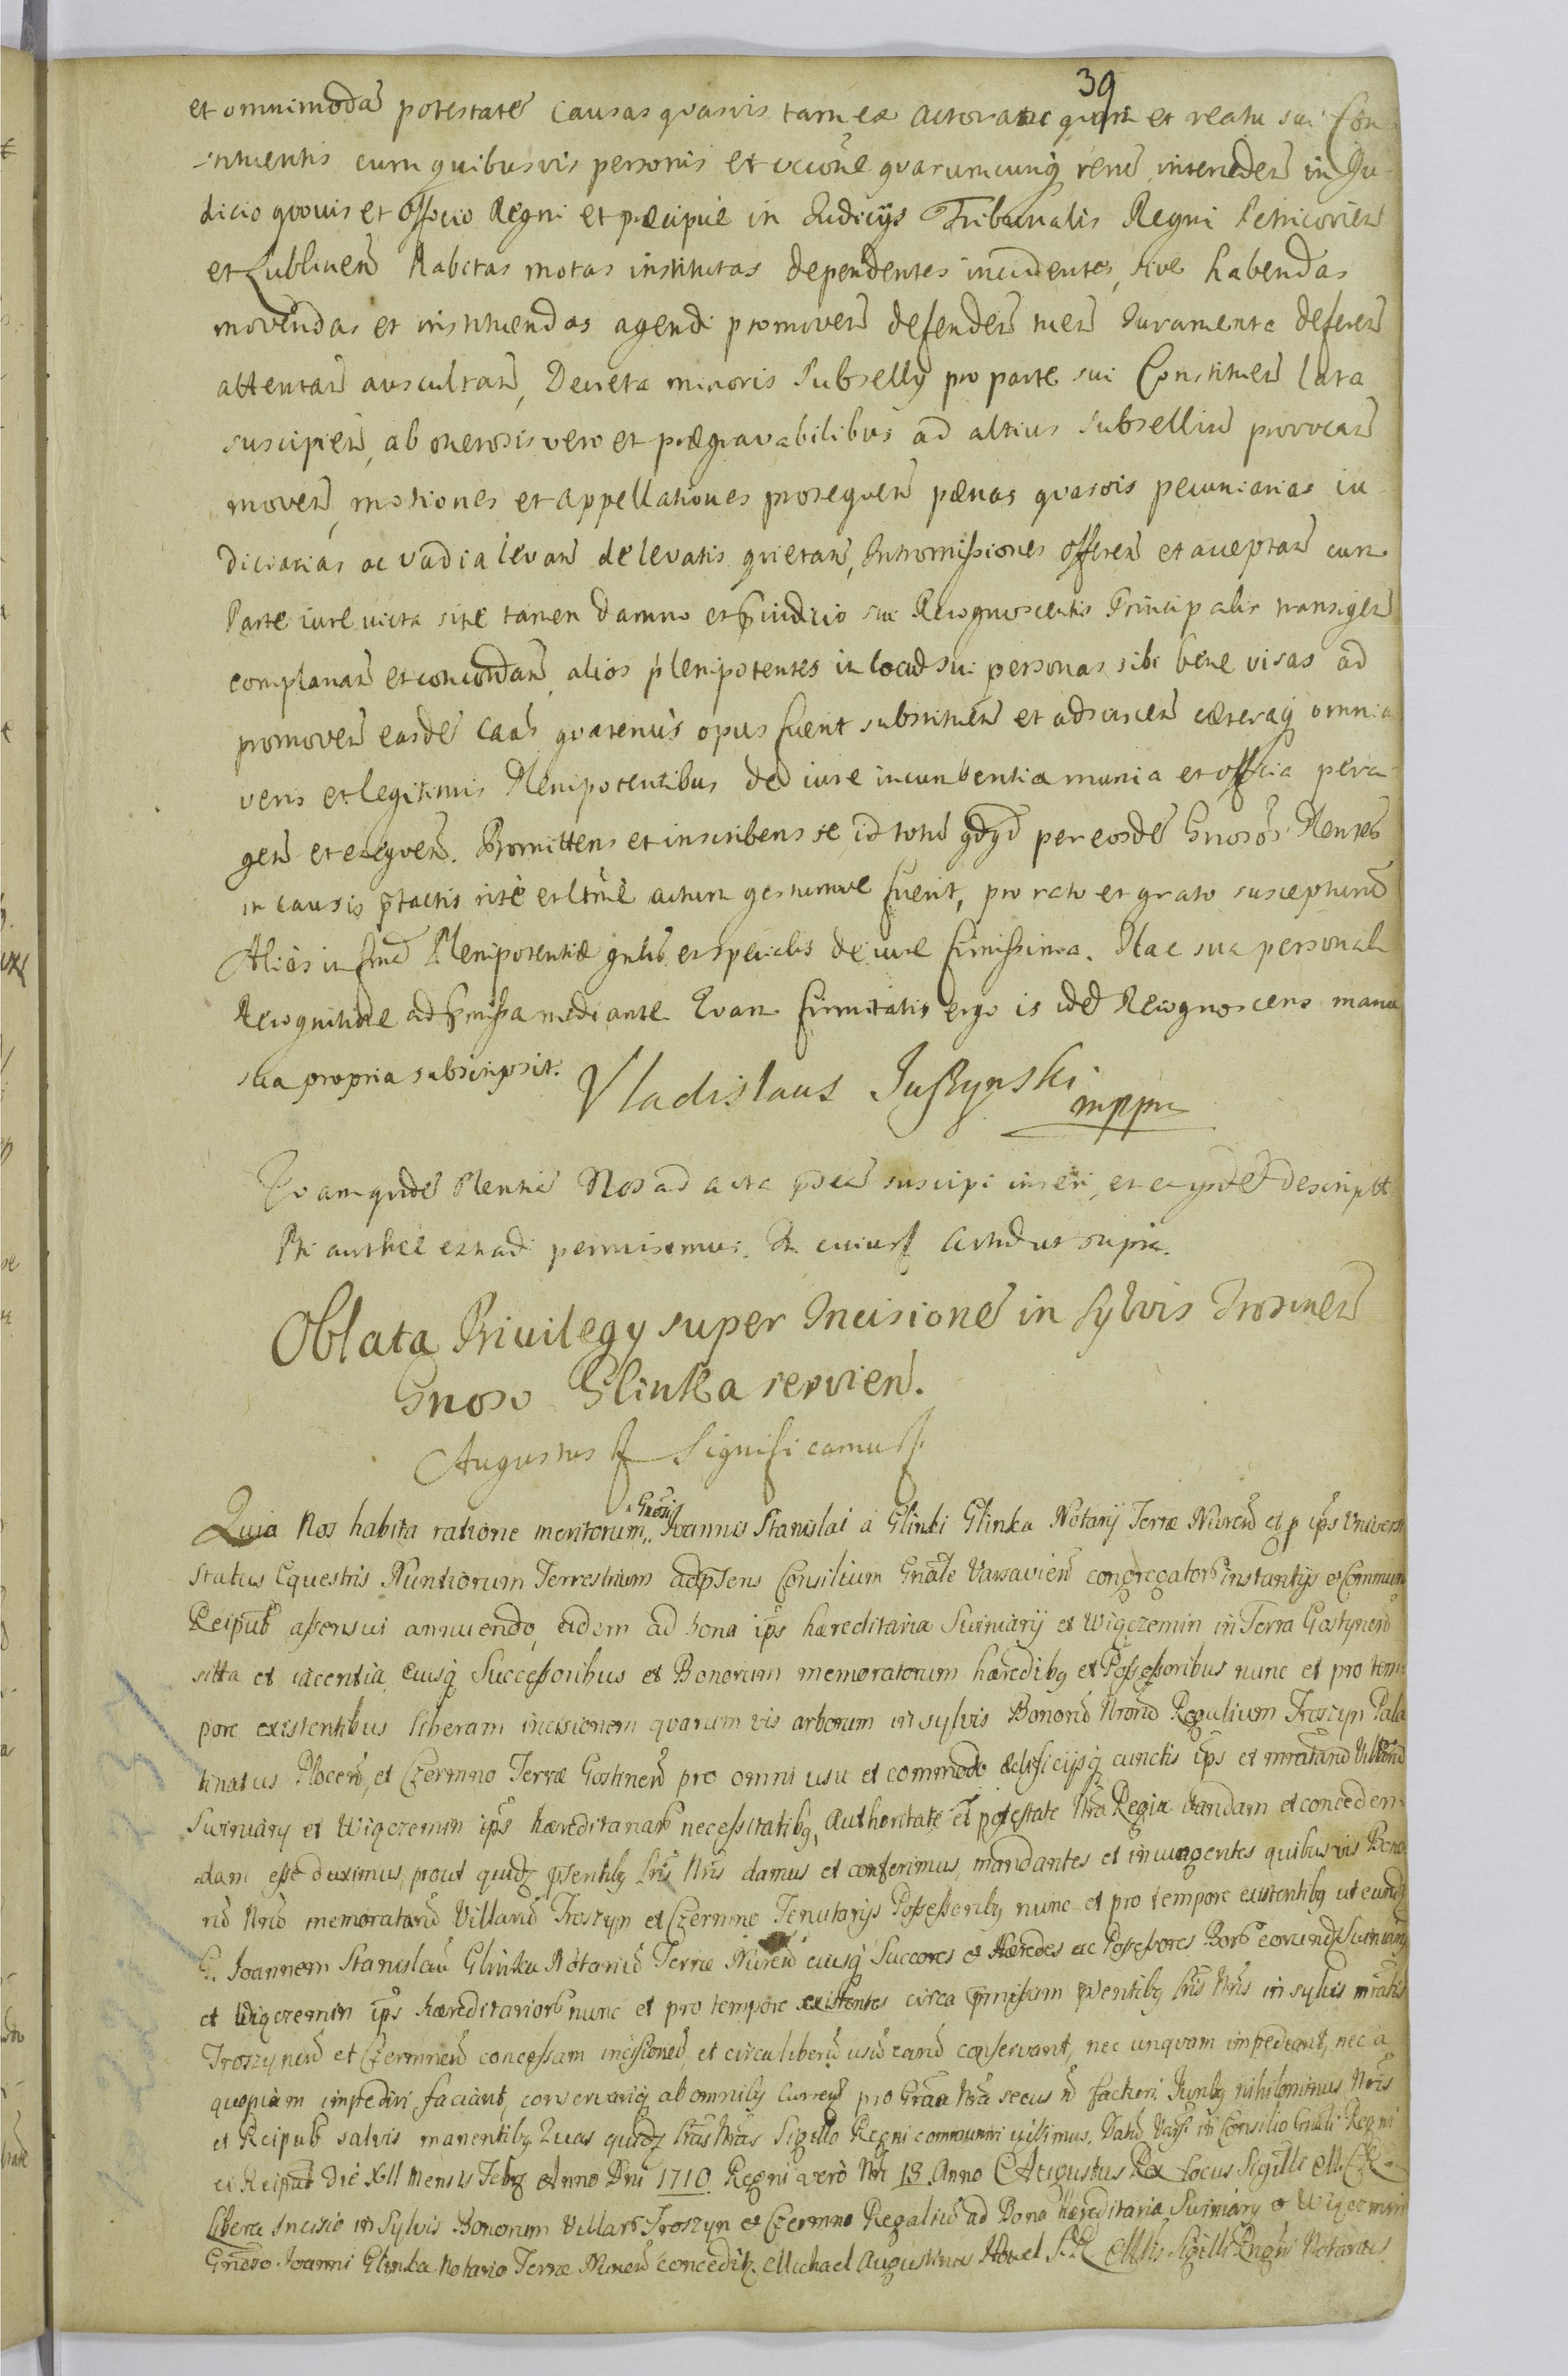 39
et omnimodā potestatē causas quasvis tam ex actoratu quam et reatu sui Con
stituentis cum quibusvis personis et occōne quarumcunq̃ rerū intercedeñ in Ju-
dicio quovis et Officio Regni et præcipuè in Judicijs Tribunalis Regni Petricovieñ
et Lublineñ habitas motas institutas dependentes incidentes, sive habendas
movendas et instituendas agendi promoveñ defendeñ tueñ Juramenta defereñ
attentañ auscultañ, Decreta minoris Subsellij pro parte sui Constitueñ lata
suscipieñ, ab onerosis vero et prægravabilibus ad altius subselliū provocañ
moveñ, motiones et appellationes prosequeñ pænas quasvis pecuniarias iu
diciarias ac vadia levañ de levatis quietañ, Intromissiones offereñ et acceptañ cum
Parte iure victa sine tamen damno et p̃iudicio sui Recognoscentis Principalis transigeñ
complanañ et concordañ, alios plenipotentes in locū sui personas sibi bene visas ad
promoveñ easdē caās quatenus opus fuerit substitueñ et adscisceñ cæteraq̃ omnia
veris et legitimis Plenipotentibus de iure incumbentia munia et officia pera-
geñ et exequeñ. Promittens et inscribens se id totū qdqd per eosdē Gnosos Plentes
in causis p̃tactis ritè et ltimè actum gestumve fuerit, pro rato et grato suscepturū
Aliàs in fmā Plenipotentiæ gnlis et specialis de iure firmissima. Hac sua personali
Recognitioē ad p̃missa mediante. Quam firmitatis ergo is idē Recognoscens manu
sua propria subscripsit.
Vladislaus Juszynski
mppr
Quamquidē Plentiā Nos ad acta p̃ntia suscipi inseri, et eiusdē descriptū
Pti authce extradi permisimus. In cuius Actū ut supra.
Oblata Privilegy super Incisionē in Sylvis Trosineñ
Gnoso Glinka servieñ.
Augustus Significamus
Gnōsi
Quia Nos habita ratione meritorum Joannis Stanislai à Glinki Glinka Notarij Terræ Nureñ et p ips Universi
Status Equestris Nuntiorum Terrestrium ad p̃sens Consilium Gnāle Varsavieñ congregatorū instantijs et Communi
Reipub assensui annuendo, eidem ad bona ips hæreditaria Swiniary et Wiączemin in Terra Gostyneñ
sitta et iacentia, eiusq̃ Successoribus et Bonorum memoratorum hæredibq et Possessoribus nunc et pro tem-
pore existentibus liberam incisionem quarumvis arborum in sylvis Bonorū Nrorū Regalium Troszyn Pala
tinatus Ploceñ, et Czermno Terræ Gostineñ pro omni usu et commodo ædificijsq̃ cunctis ips et mratarū Villarū
Swiniary et Wiączemin ips hæreditariarū necessitatibq, Authoritate et potestate Nra Regia dandam et conceden-
dam esse duximus, prout quidz p̃sentibq lris Nris damus et conferimus, mandantes et iniungentes quibusvis Bono
rū Nrorū memoratarū Villarū Troszyn et Czermno Tenutarijs Possessoribq nunc et pro tempore existentibq ut eundz
G. Joannem Stanislaū Glinka Notariū Terræ Nureñ eiusq̃ Succores et Hæredes ac Possessores Borū eorundz Swiniary
et Wiączemin ips hæreditariorū nunc et pro tempore existentes circa p̃missam p̃sentibq lris Nris in sylvis mratis
Troszyneñ et Czermneñ concessam incisionē, et circa liberū usū eiusd conservant, nec unquam impediant, nec a
quopiam impediri faciant, conservariq̃ ab omnibq current pro Gratia Nra secus ñ facturi. Juribq nihilominus Nris
et Reipub salvis manentibq Quas quidz Lras Nras Sigillo Regni communiri iussimus. Datū Vars: in Consilio Gnāli Regni
et Reipub Die XII Mensis Febr Anno Dni 1710. Regni verò Nri 13. Anno Augustus Rex Locus Sigilli M. C. R.
Libera Incisio in Sylvis Bonorum Villarū Troszyn et Czermno Regaliū ad Bona hæreditaria Swiniary et Wiączemin
Gnēroso Joanni Glinka Notario Terræ Nureñ conceditz. Michael Augustinus Havel S. R. Mtis Sigilli Regni Notarius